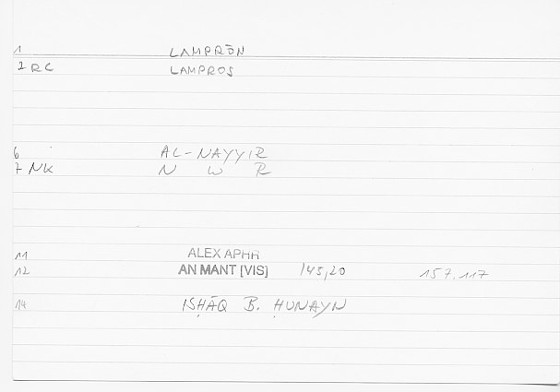 1 LAMPRŌN
2 RC LAMPROS
6 AL-NAYYIR
7 NK N W R
11 ALEX APHR
12 AN MANT [VIS] 145,20 157.117
14 ISḤĀQ B. ḤUNAYN